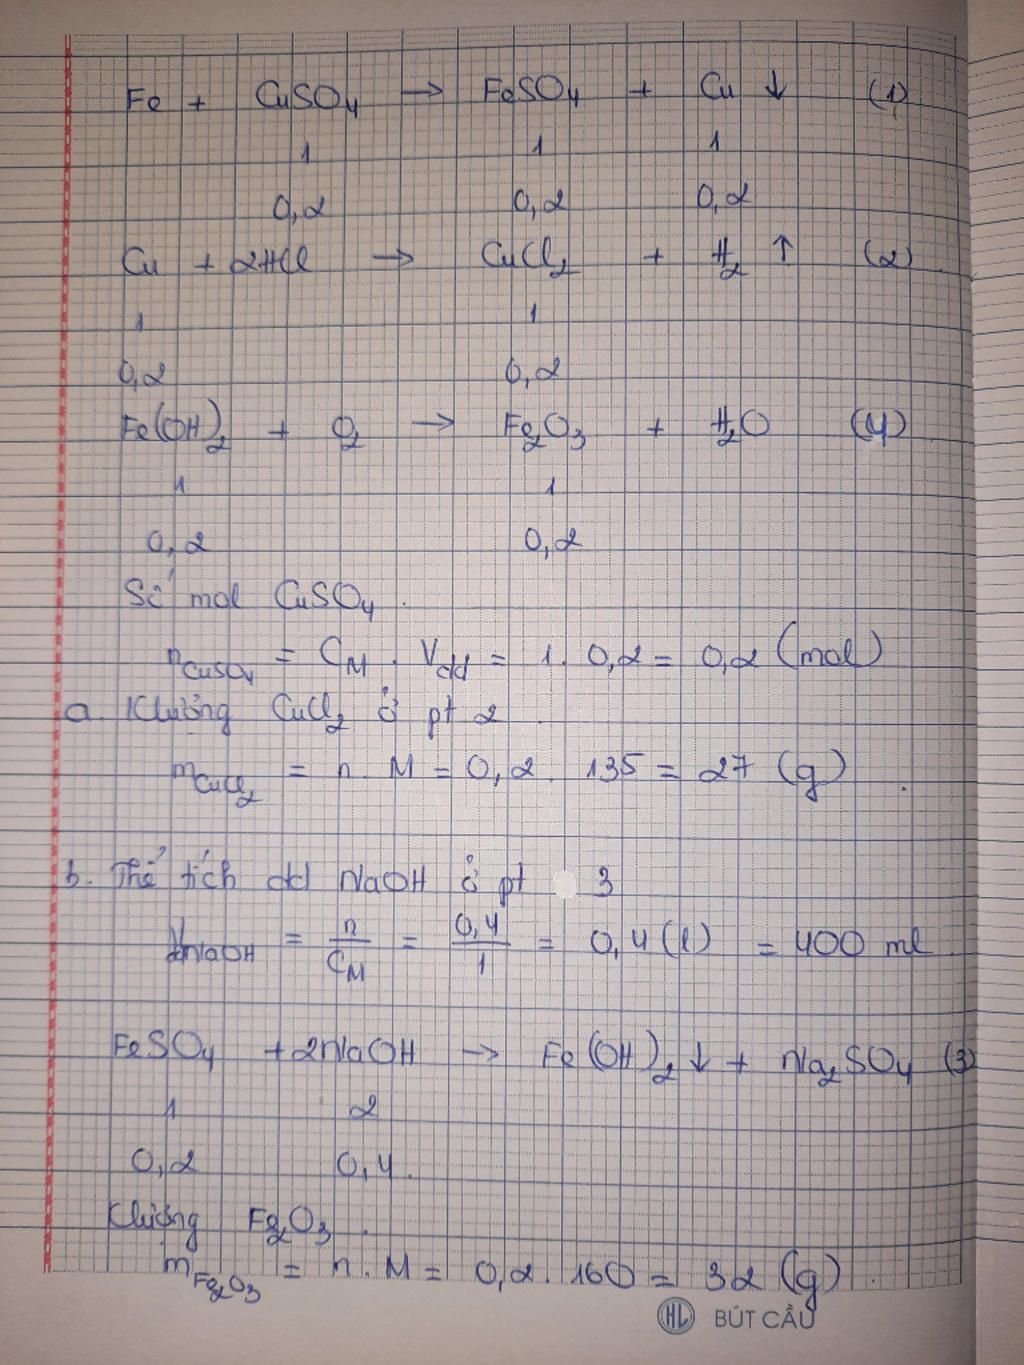 Fe + CuSO4 → FeSO4 + Cu ↓ (1)
1 1 1
0,2 0,2 0,2
Cu + 2HCl → CuCl2 + H2 ↑ (2)
1 1
0,2 0,2
Fe(OH)2 + O2 → Fe2O3 + H2O (4)
1 1
0,2 0,2
Số mol CuSO4.
nCuSO4 = CM . Vdd = 1. 0,2 = 0,2 (mol)
a. Klượng CuCl2 ở pt 2.
mCuCl2 = n. M = 0,2. 135 = 27 (g).
b. Thể tích dd NaOH ở pt 3
VddNaOH = n/CM = 0,4/1 = 0,4 (l) = 400 ml.
FeSO4 + 2NaOH → Fe(OH)2 ↓ + Na2SO4 (3)
1 2
0,2 0,4.
Klượng Fe2O3.
mFe2O3 = n. M = 0,2. 160 = 32 (g).
HL BÚT CẦU